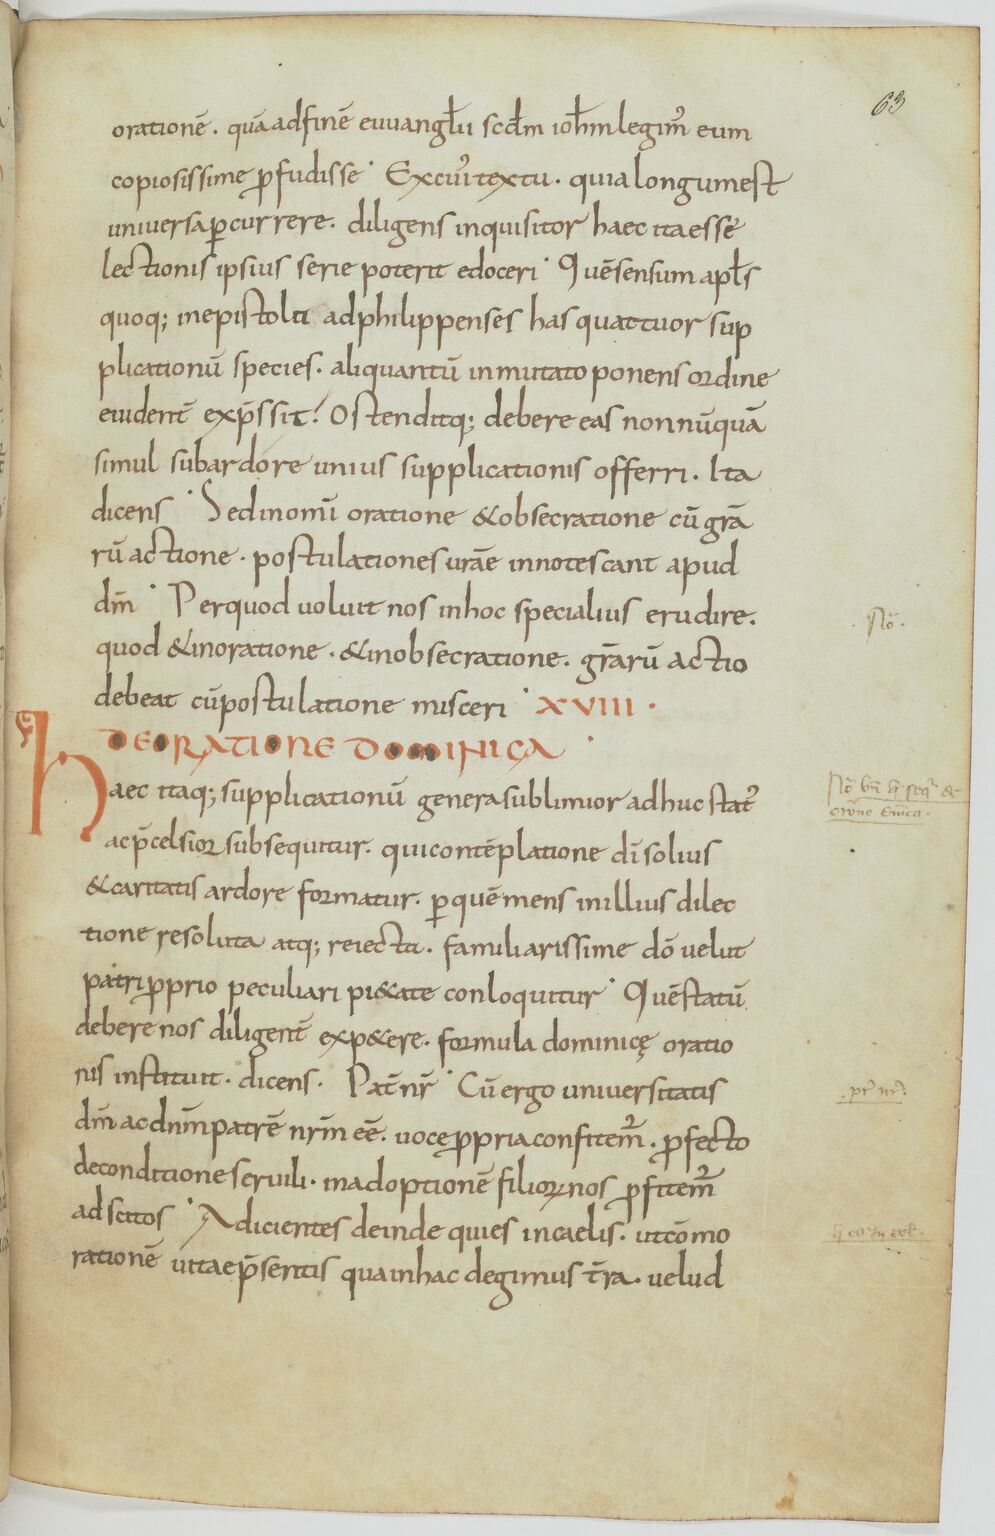 63
orationē. quā ad finē euuangl̄ii scd̄m ioh̄m legim᷒ eum
copiosissime ꝑfudisse. Ex cui᷒ textu. quia longum est
uniuersa ꝑcurrere. diligens inquisitor haec ita esse
lectionis ipsius serie poterit edoceri. Quē sensum apl̄s
quoq; in epistola ad philippenses has quattuor sup
plicationū species. aliquantū inmutato ponens ordine
euident̄ exp̄ssit. Ostenditq; debere eas nonnūquā
simul sub ardore unius supplicationis offerri. Ita
dicens. Sed in omī oratione & obsecratione cū gra̅
rū actione. postulationes ur̄ae innotescant apud
dm̄. Per quod uoluit nos in hoc specialius erudire.
quod & in oratione. & in obsecratione. gr̄arū actio
debeat cū postulatione misceri. XVIII.
DE ORATIONE DOMINICA
Haec itaq; supplicationū genera sublimior adhuc stat᷒
ac p̄celsior subsequitur. qui contēplatione dī solius
& caritatis ardore formatur. ꝑ quē mens in illius dilec
tione resoluta atq; reiecta. familiarissime dō uelut
patri ꝓprio peculiari pi&ate conloquitur. Quē statū
debere nos diligent̄ exp&ere. formula dominicę oratio
nis instituit. dicens. Pat̄ nr̄. Cū ergo uniuersitatis
dm̄ ac dnm̄ patrē nrm̄ eē. uoce ꝓpria confitem᷒. ꝓfecto
de conditione seruili. in adoptionē filioꝝ nos ꝓfitem᷒
adscitos. Adicientes deinde qui es in caelis. ut cōmo
rationē uitae p̄sentis qua in hac degimus t̄ra. uelud
No᷒.
pr̄ nr̄.